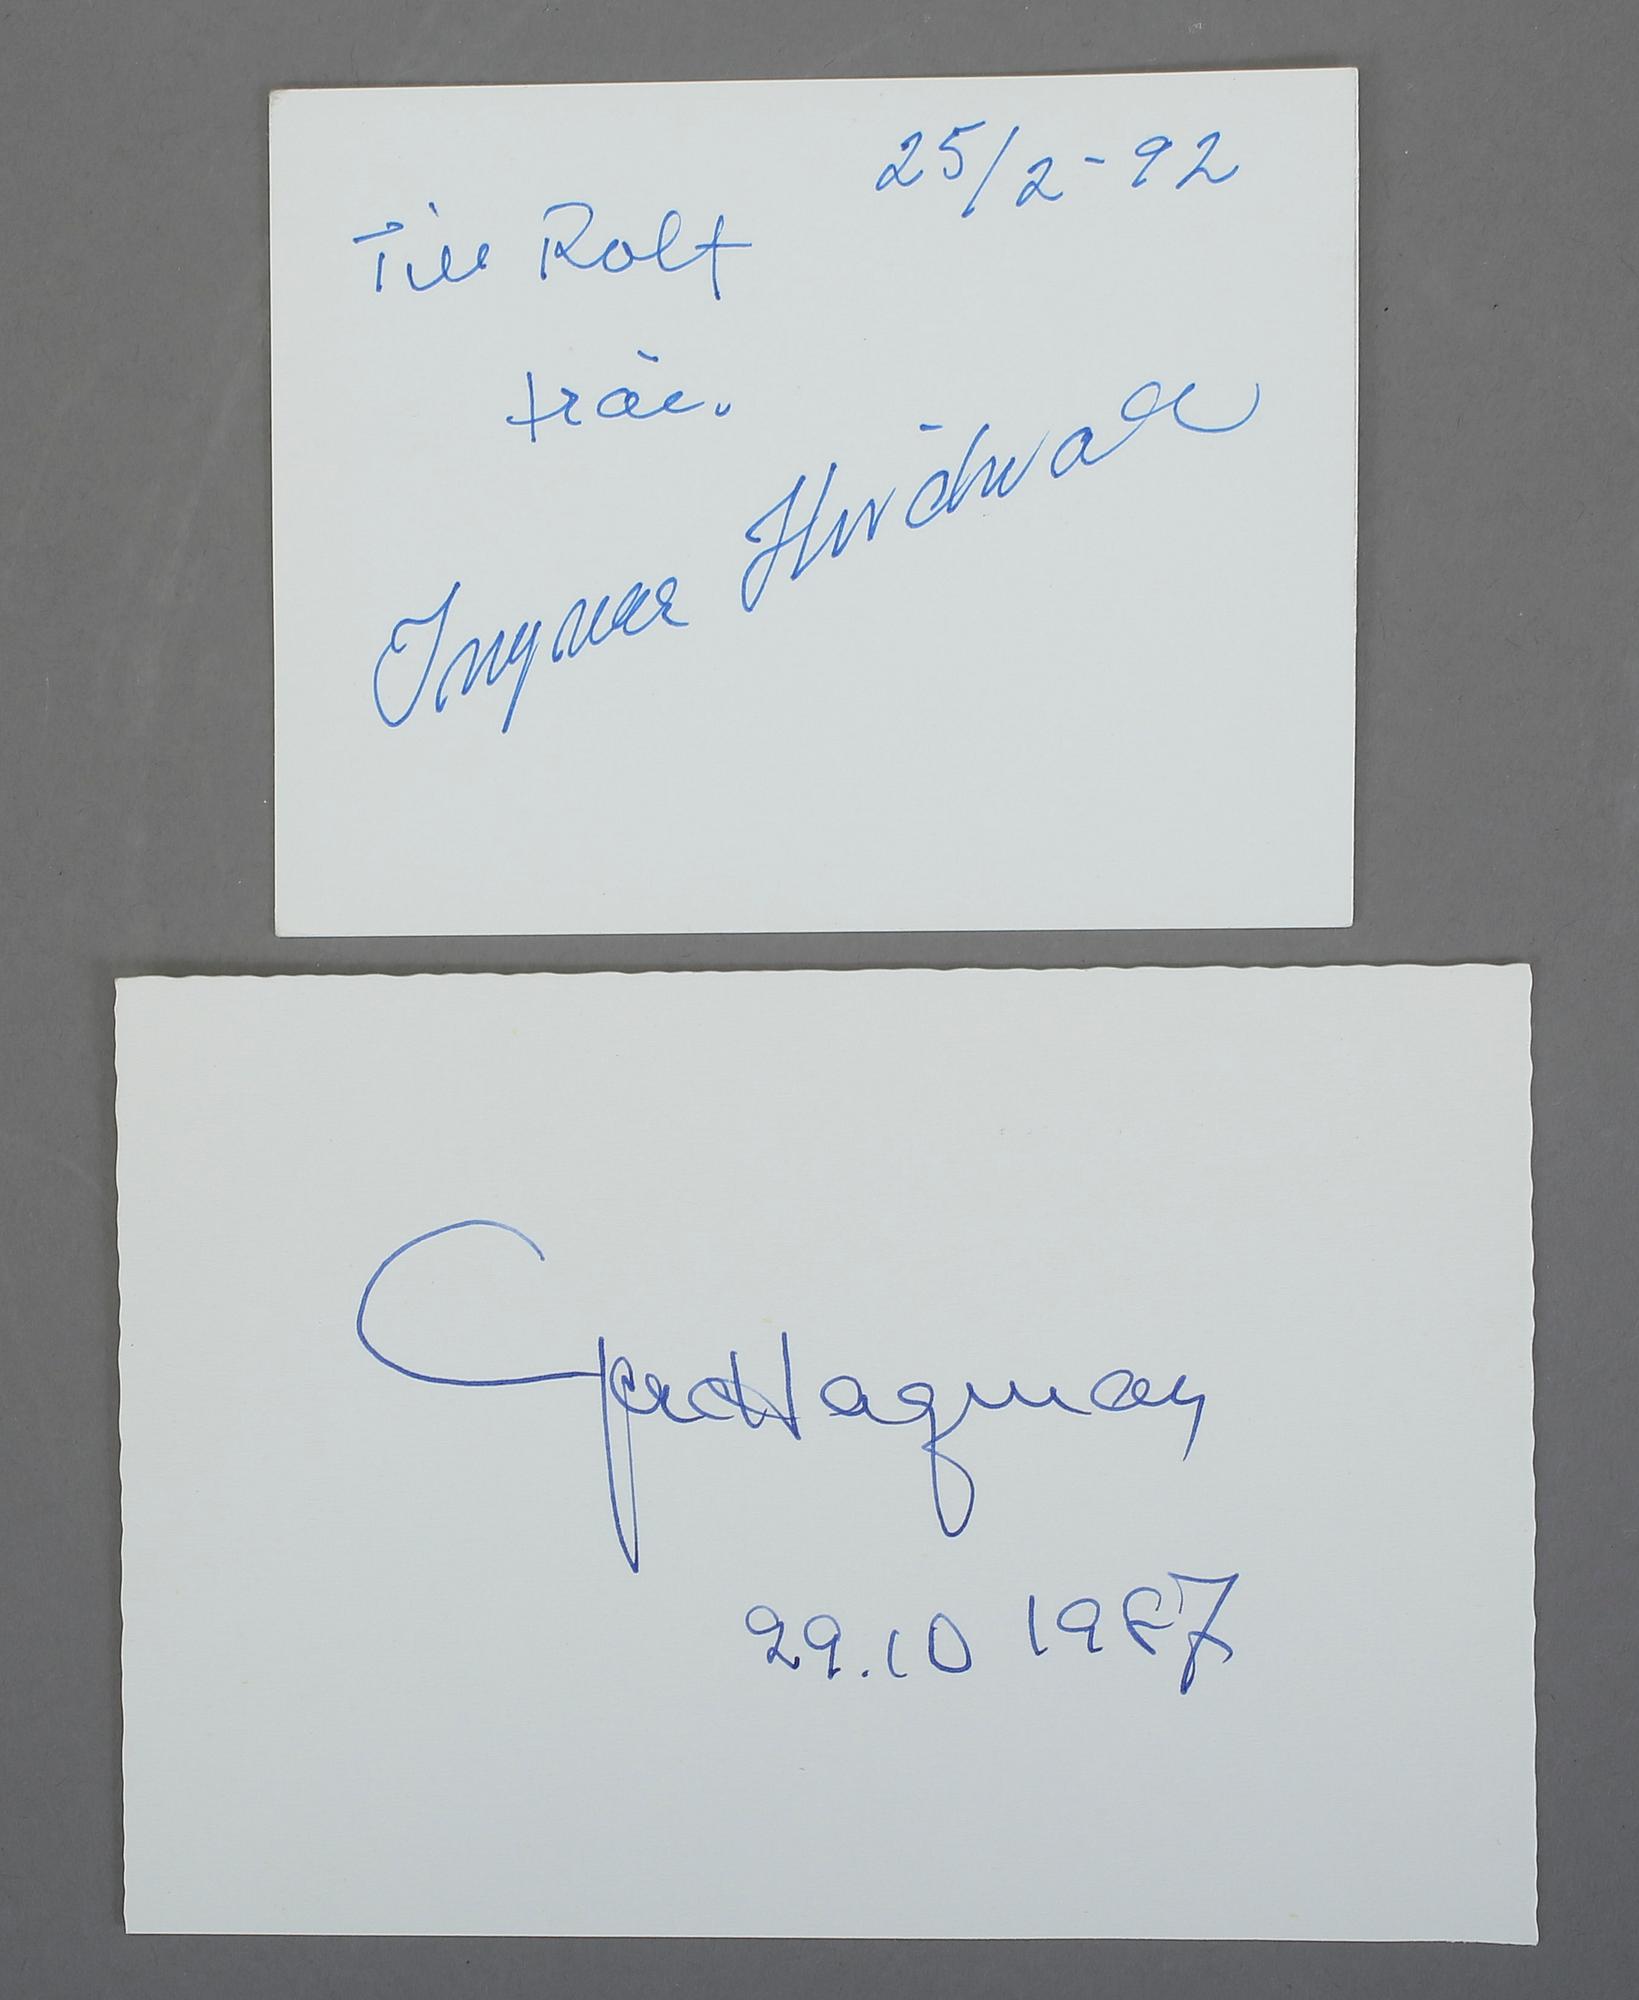 25/2-92
Till Rolf
från.
Ingvar Hirdwall
Gerd Hagman
29.10 1987